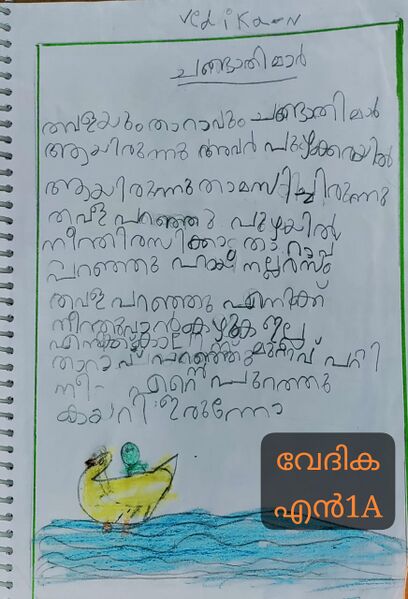 Vedika.N
ചങ്ങാതിമാർ
തവളയും താറാവും ചങ്ങാതിമാർ
ആയിരുന്നു അവർ പുഴക്കരയിൽ
ആയിരുന്നു താമസിച്ചിരുന്നു
തവള പറഞ്ഞു പുഴയിൽ
നീന്തിരസിക്കാം താറാവ്
പറഞ്ഞു ഹായ് നല്ലരസം
തവള പറഞ്ഞു എനിക്ക്
നീന്തുവാൻ കഴുകഇല്ല
എന്റെ കാലിൽ
താറാവ് പറഞ്ഞു മുറിവ് പറ്റി
നീ എന്റെ പുറത്തു
കയറി ഇരുന്നോ
വേദിക
എൻ1A